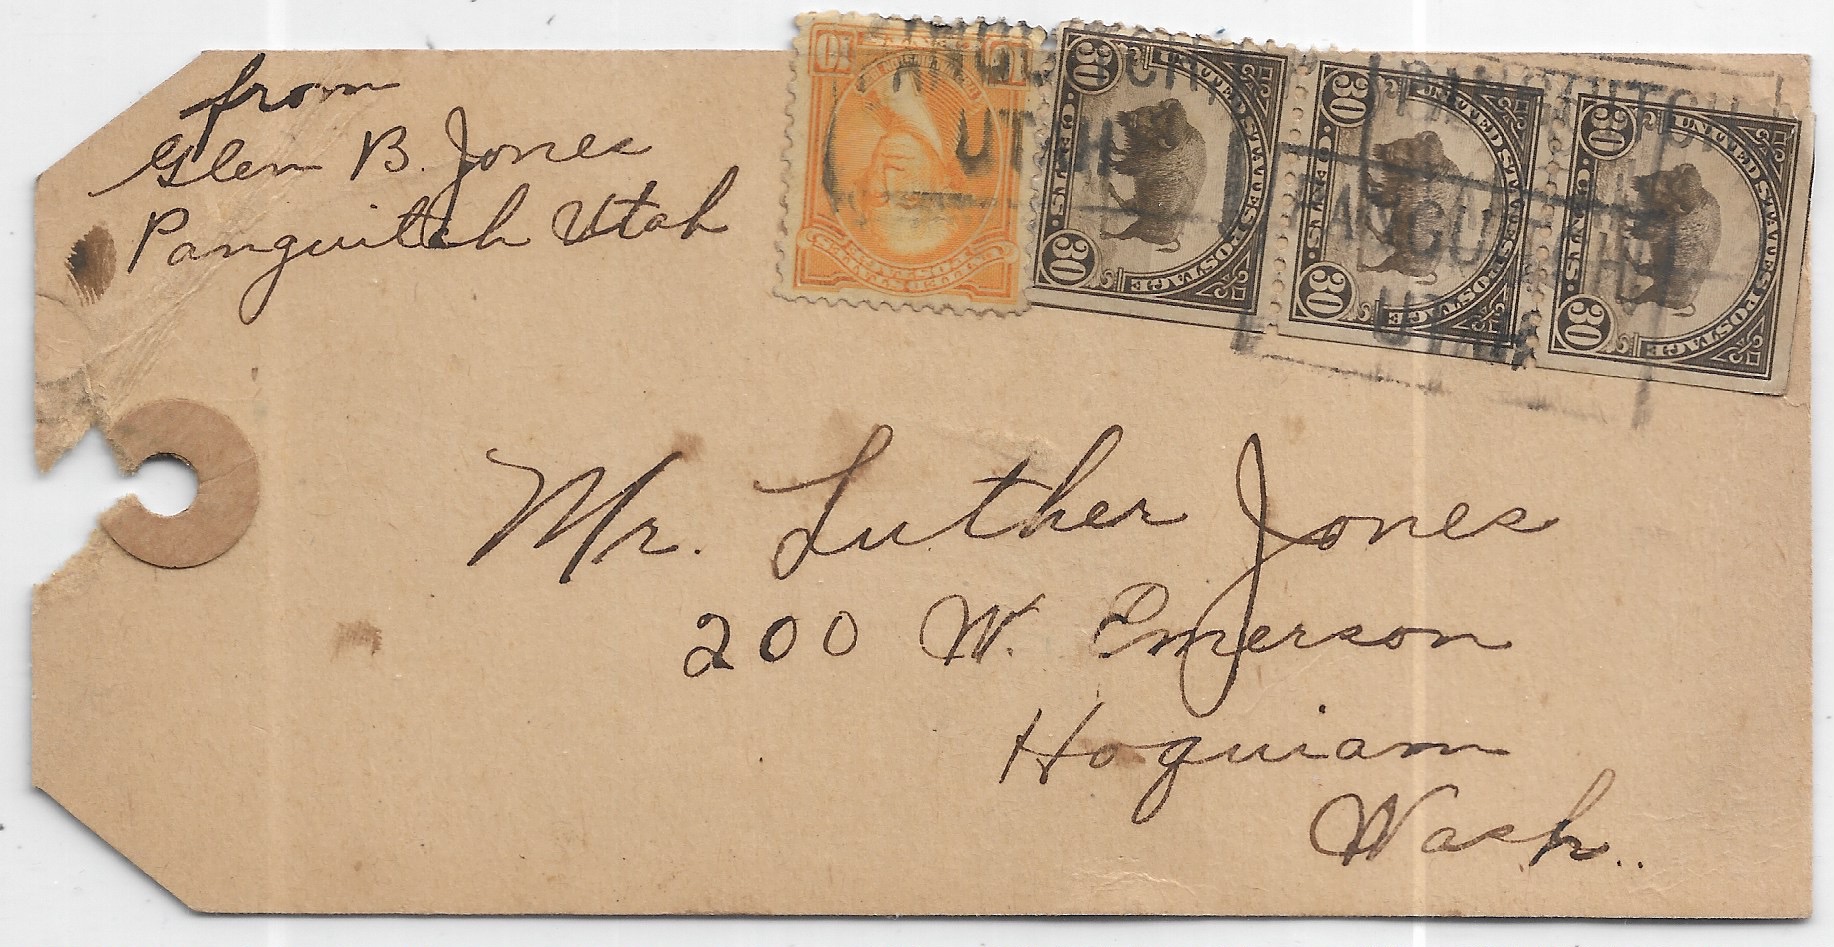 from
Glen B. Jones
Panguitch Utah
10 10
UNITED STATES POSTAGE
30 CENTS 30
UNITED STATES POSTAGE
30 CENTS 30
UNITED STATES POSTAGE
30 CENTS 30
PANGUITCH
UTAH
PANGUITCH
PANGUITCH
UTAH
Mr. Luther Jones
200 W. Emerson
Hoquiam
Wash..